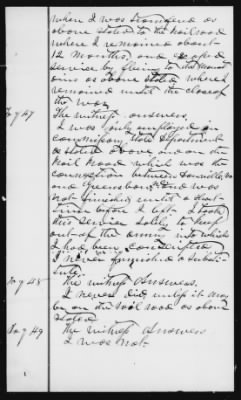 when I was transfered as
above stated to the Rail road
where I remained about
12 months, and escaped
service by
as above stated where I
remained until the close of
the war.
To q 47 The witness answers.
I was only employed in
Commissary Department
as stated above and on the
Rail Road which was the
connection between Danville Va
and Greensboro and was
not finished until a short
time before I left. I took
this service solely to keep
out of the army into which
I had been conscripted
I never furnished a substi-
tute
To q 48 The witness Answers.
I never did, unless it may
be on the Rail road as above
stated
To q 49 The witness Answers
I was not